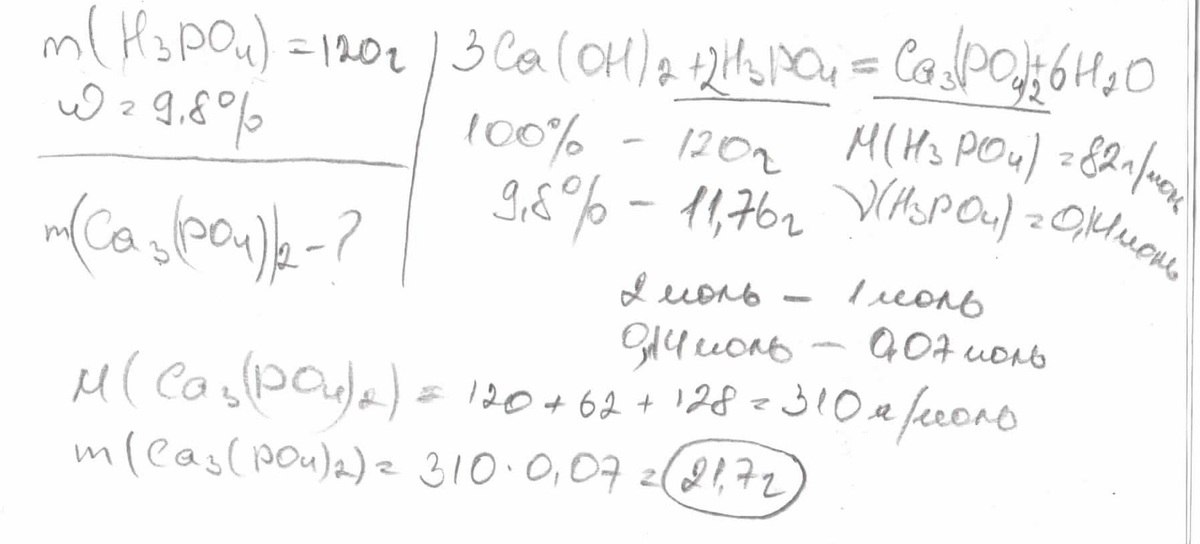 m(H₃PO₄) = 120г
ω = 9,8%
m(Ca₃(PO₄)₂ - ?
3Ca(OH)₂ + 2H₃PO₄ = Ca₃(PO₄)₂ + 6H₂O
100% - 120г
9,8% - 11,76г
M(H₃PO₄) = 82г/моль
ν(H₃PO₄) = 0,14моль
2 моль - 1 моль
0,14 моль - 0,07 моль
M(Ca₃(PO₄)₂) = 120 + 62 + 128 = 310 г/моль
m(Ca₃(PO₄)₂) = 310 · 0,07 = 21,7г